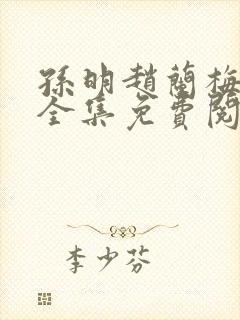 孫明趙蘭梅
全集免費閱
李少芬